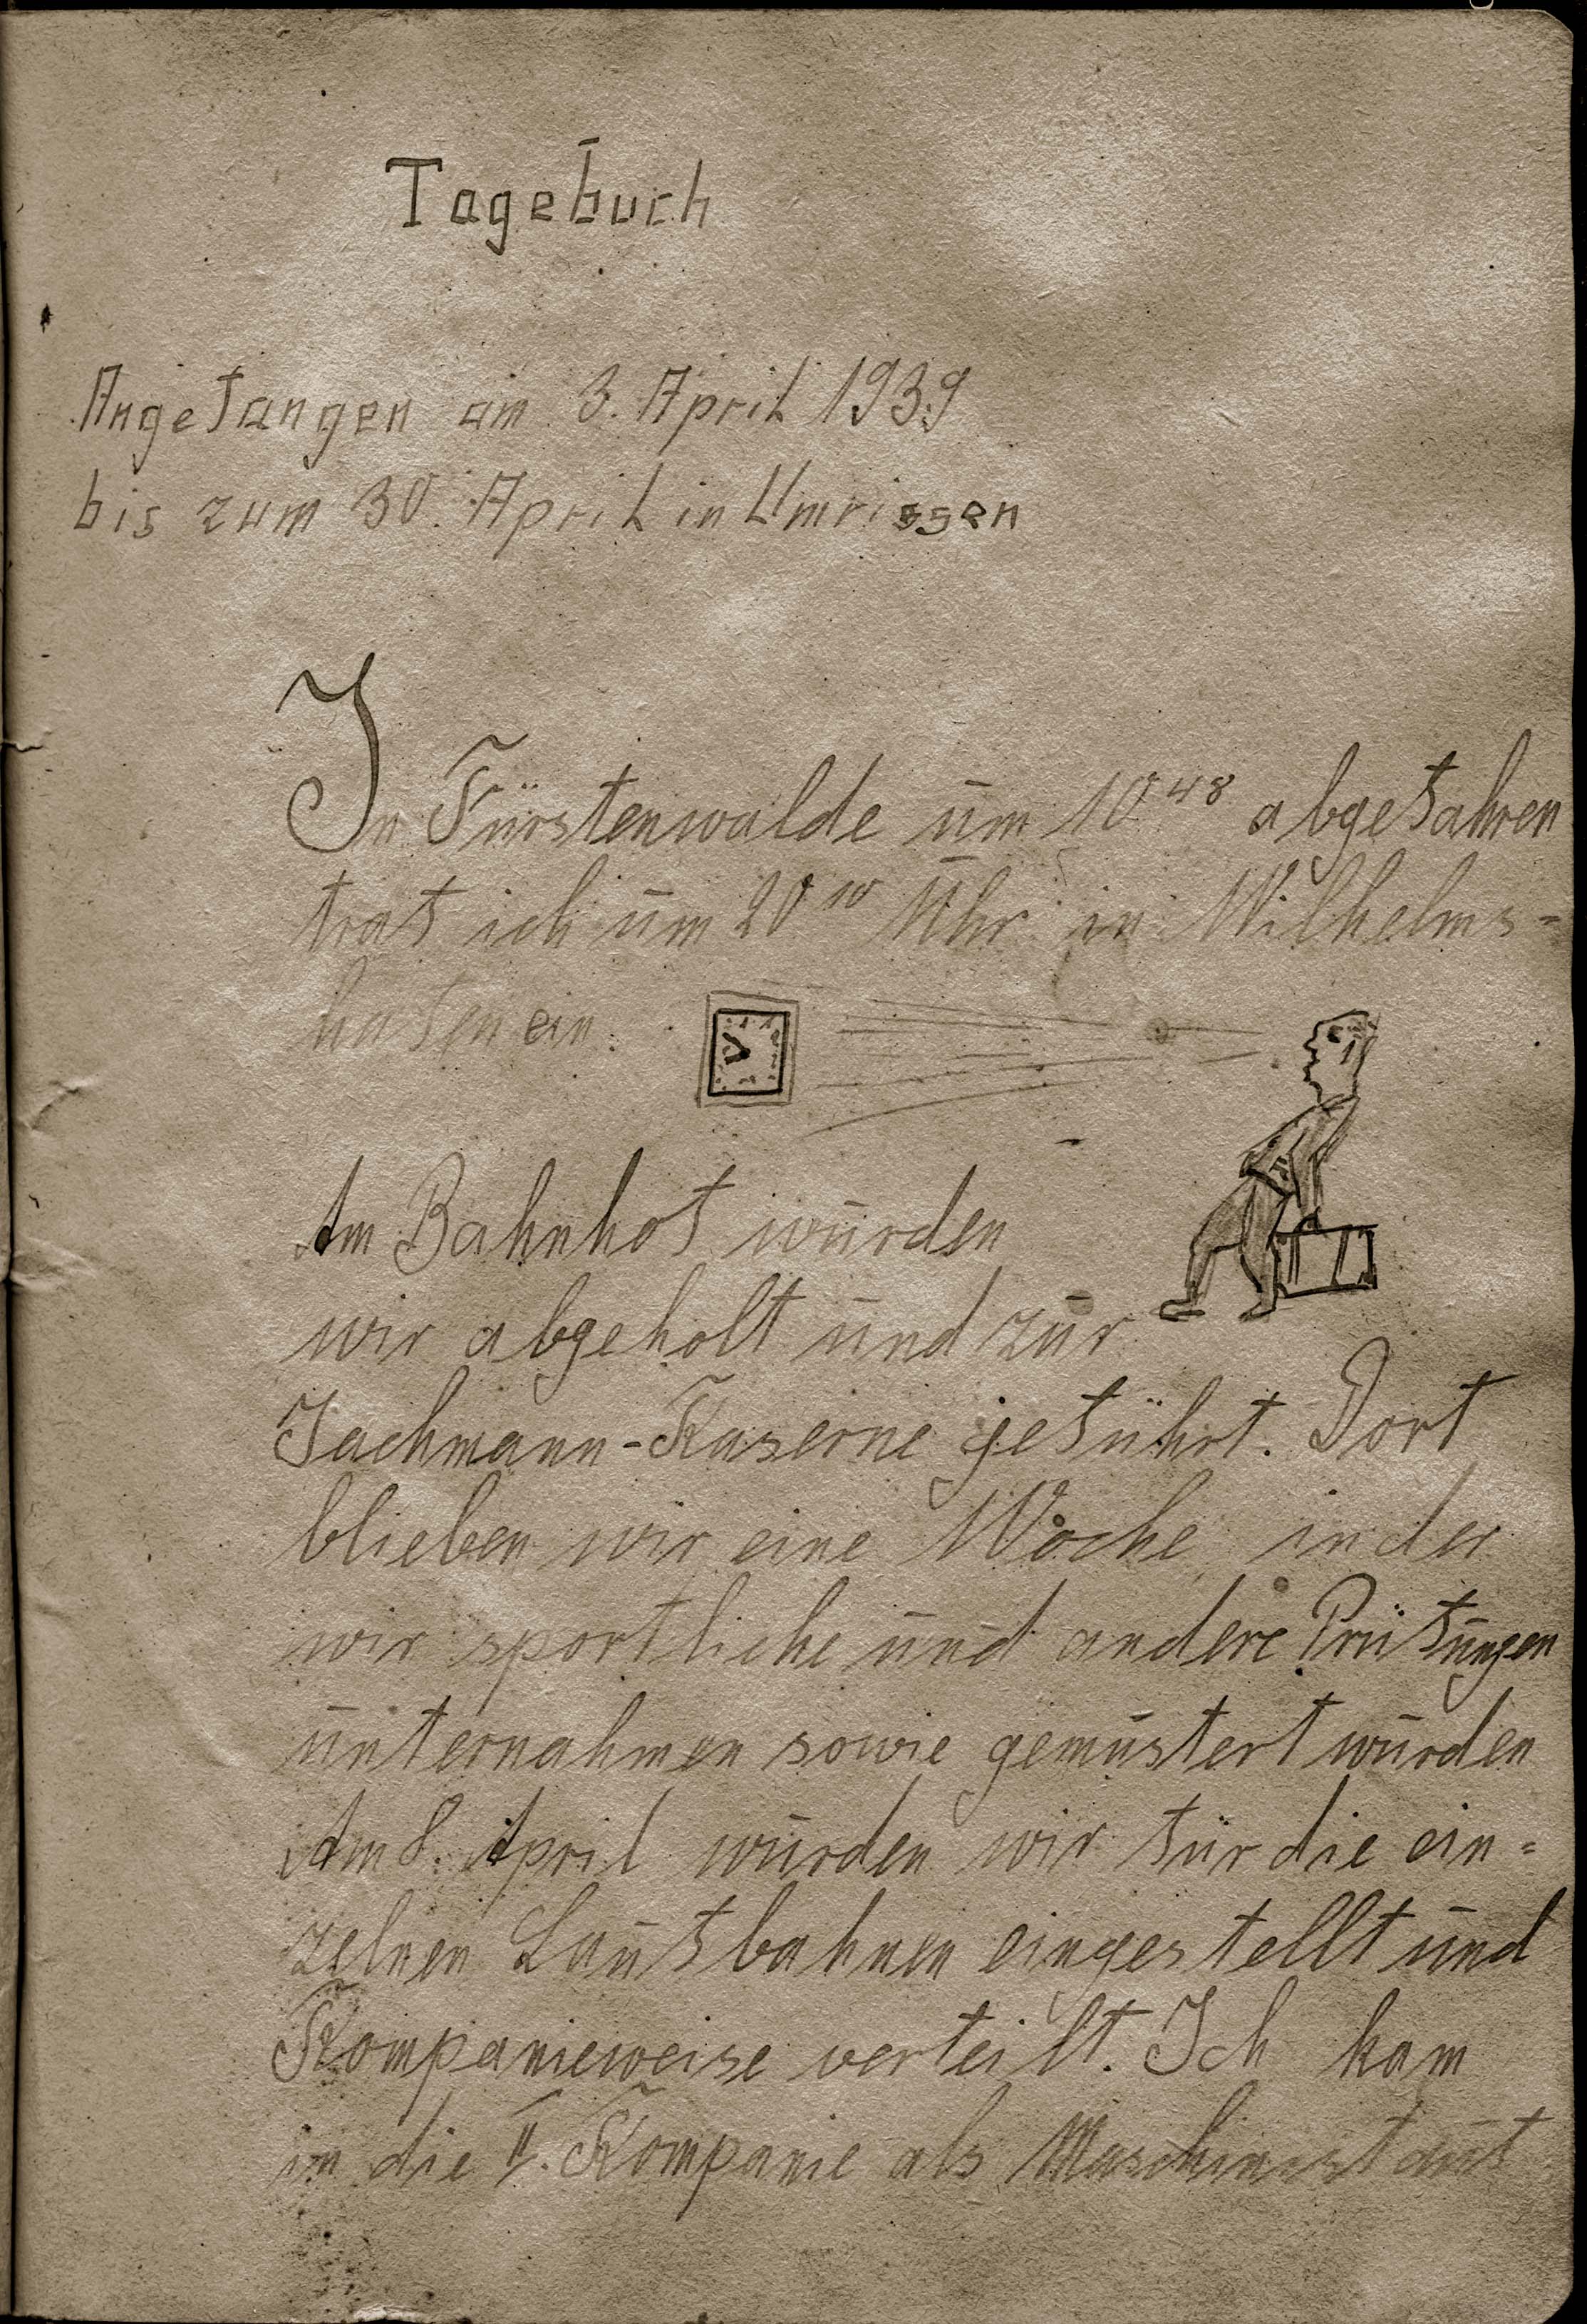 Tagebuch
Angefangen am 3. April 1939
bis zum 30. April in Umrissen
In Fürstenwalde um 10⁴⁸ abgefahren
traf ich um 20¹⁰ Uhr in Wilhelms=
hafen ein.
Am Bahnhof wurden
wir abgeholt und zur
Jachmann-Kaserne geführt. Dort
blieben wir eine Woche, in der
wir sportliche und andere Prüfungen
unternahmen sowie gemustert wurden
Am 8. April wurden wir für die ein=
zelnen Laufbahnen eingestellt und
Kompanieweise verteilt. Ich kam
in die II. Kompanie als Maschinist auf